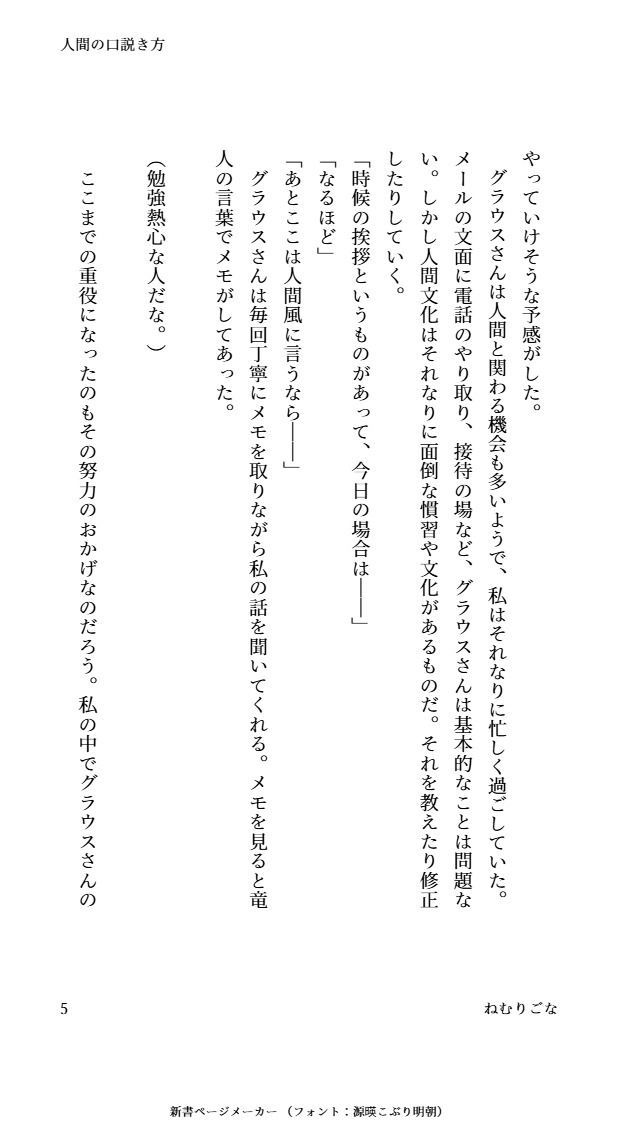 人間の口説き方
やっていけそうな予感がした。
グラウスさんは人間と関わる機会も多いようで、私はそれなりに忙しく過ごしていた。
メールの文面に電話のやり取り、接待の場など、グラウスさんは基本的なことは問題な
い。しかし人間文化はそれなりに面倒な慣習や文化があるものだ。それを教えたり修正
したりしていく。
「時候の挨拶というものがあって、今日の場合は――」
「なるほど」
「あとここは人間風に言うなら――」
グラウスさんは毎回丁寧にメモを取りながら私の話を聞いてくれる。メモを見ると竜
人の言葉でメモがしてあった。
（勉強熱心な人だな。）
ここまでの重役になったのもその努力のおかげなのだろう。私の中でグラウスさんの
5
ねむりごな
新書ページメーカー（フォント：源暎こぶり明朝）